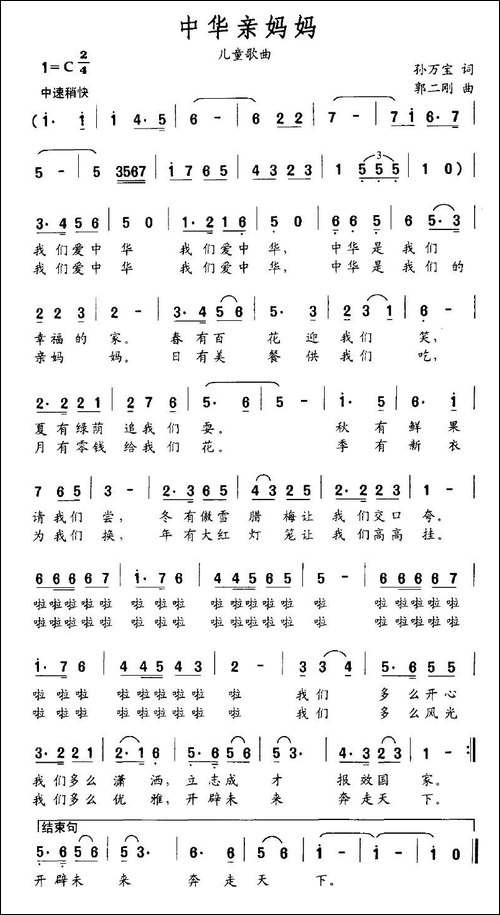 中华亲妈妈
儿童歌曲
1=C 2/4
孙万宝 词
中速稍快
郭二刚 曲
(i· i | i 4·5 | 6 - | 6 622 | 7 - | 7 i 6·7 |
5 - | 5 3567 | i 7 6 5 | 4 3 2 3 | 1 5 5 5 | 1 0) |
3· 4 5 6 | 5 0 | i· 2 i 6 | 5 0 | 6 6 5 | 6 5·3 |
我们爱中 华 我们爱中 华, 中华是 我们
我们爱中 华 我们爱中 华, 中华是 我们的
2 2 3 | 2 - | 3· 4 5 6 | 5· 3 | 2 3 1 | 6 - |
幸福的 家。 春有百 花 迎 我们 笑,
亲妈 妈。 日有美 餐 供 我们 吃,
2· 2 2 1 | 2 7 6 | 5· 6 | 5 - | i· 5 | 6· i |
夏有绿荫 追我们 耍。 秋 有 鲜 果
月有零钱 给我们 花。 季 有 新 衣
7 6 5 | 3 - | 2· 3 5 5 | 4 3 2 5 | 2· 2 2 3 | 1 - |
请我们 尝, 冬有傲雪 腊 梅让 我们交口 夸。
为我们 换, 年有大红 灯 笼让 我们高高 挂。
6 6 6 6 6 7 | i· 7 6 | 4 4 5 6 5 | 5 - | 6 6 6 6 6 7 |
啦啦啦啦啦 啦 啦 啦 啦啦啦啦 啦 啦啦啦啦啦
啦啦啦啦啦 啦 啦 啦 啦啦啦啦 啦 啦啦啦啦啦
i· 7 6 | 4 4 5 4 3 | 2 - | 3 3 4 | 5· 5 5 |
啦 啦啦 啦啦啦啦啦 啦 我们 多么开心
啦 啦啦 啦啦啦啦啦 啦 我们 多么风光
3· 2 2 1 | 2· 1 6 | 5· 6 5 6 | 5 3· | 4· 3 2 2 3 | 1 - :||
我们多么 潇 洒, 立志成 才 报效国 家。
我们多么 优 雅, 开辟未 来 奔走天 下。
结束句
5· 6 5 6 | 5 3· | 6· 6 | 5 6 i | i - | i 0 ||
开辟未 来 奔 走 天 下。